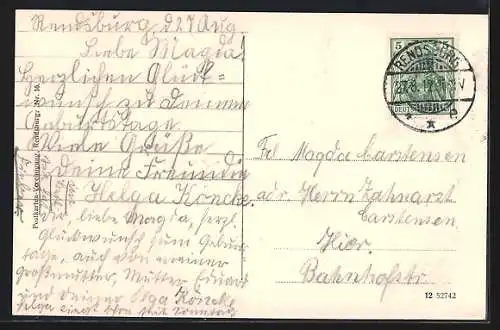 Rendsburg d 27 Aug
Liebe Magda!
Herzlichen Glück-
wunsch zu Deinem
Geburtstage.
Viele Grüße
Deine Freundin
Helga Köncke
Dir, liebe Magda, herzl.
Glückwunsch zum Geburts-
tage, auch von meiner
Großmutter, Mutter
und Deiner Olga Köncke
Helga liegt schon seit Sonntag
Postkarten-Vereinigung Rendsburg: Nr. 16.
5
RENDSBURG
27.8.
V
* e
Frl Magda Carstensen
adr. Herrn Zahnarzt
Carstensen
Hier.
Bahnhofstr.
12 52742